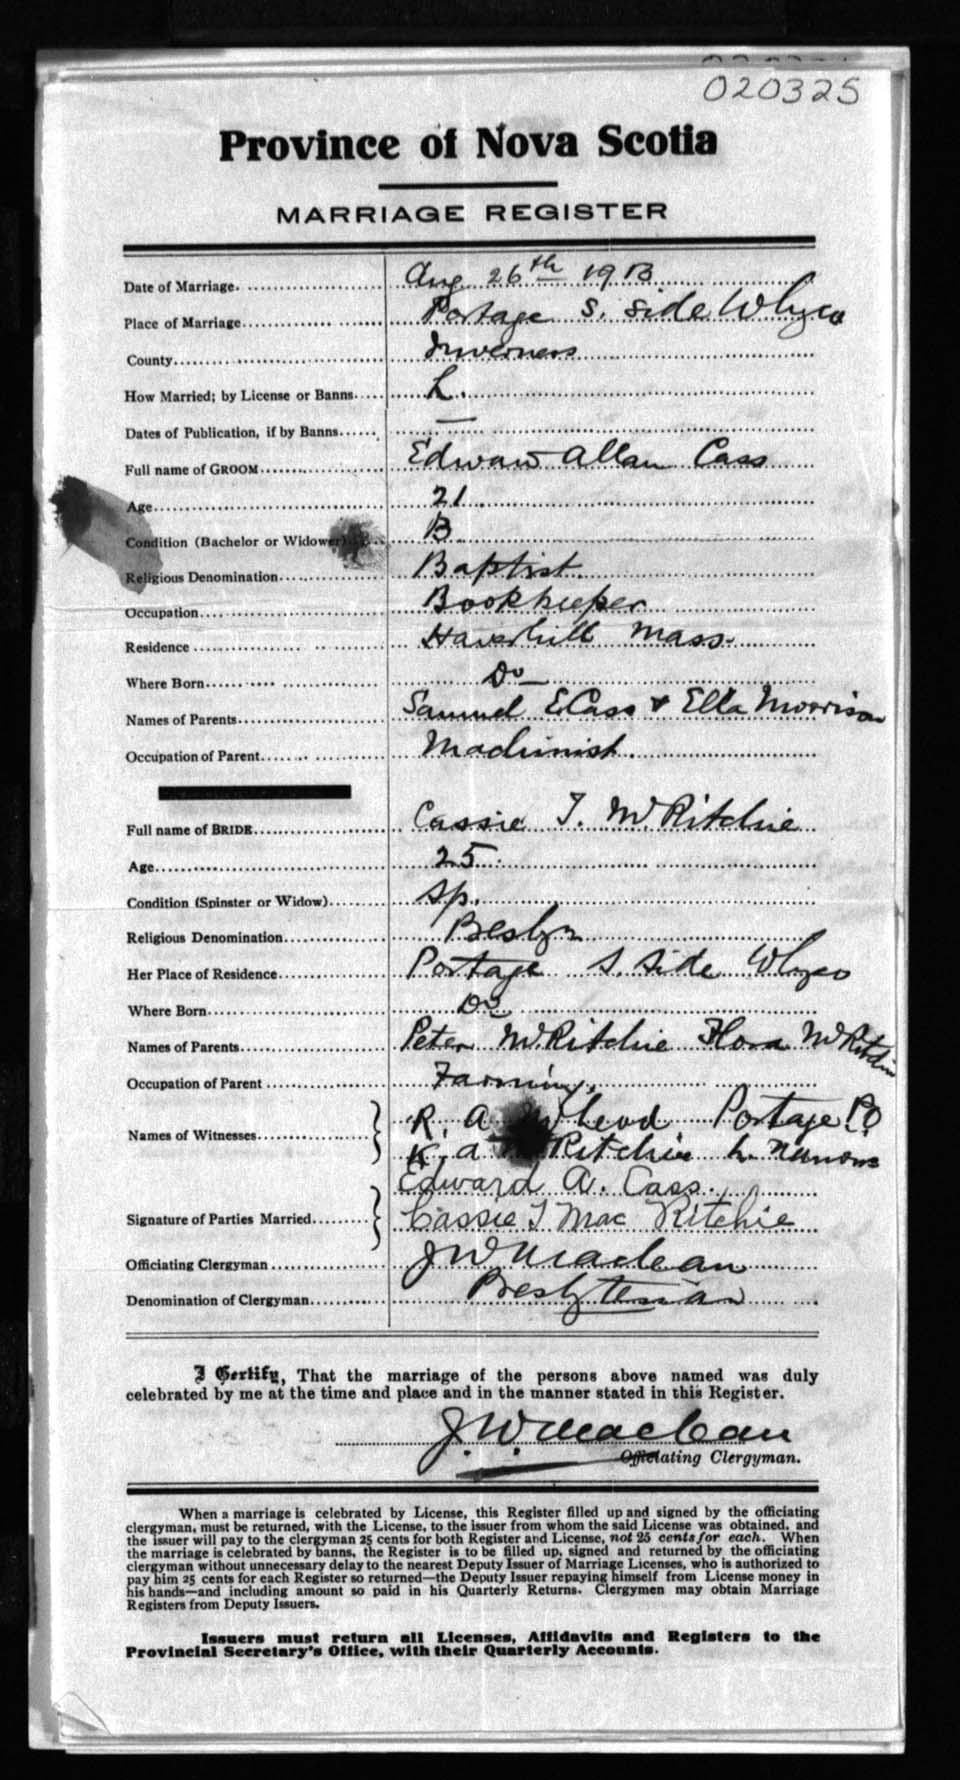 020325
Province of Nova Scotia
MARRIAGE REGISTER
Date of Marriage. Aug 26th 1913
Place of Marriage Portage S. side Whyco
County Inverness
How Married; by License or Banns L.
Dates of Publication, if by Banns —
Full name of GROOM Edward Allan Cass
Age 21
Condition (Bachelor or Widower) B
Religious Denomination Baptist
Occupation Bookkeeper
Residence Haverhill Mass.
Where Born Do
Names of Parents Samuel E Cass & Ella Morrison
Occupation of Parent Machinist.
Full name of BRIDE Cassie T. McRitchie
Age 25
Condition (Spinster or Widow) Sp.
Religious Denomination Presbyn
Her Place of Residence Portage S. Side Whyco
Where Born Do
Names of Parents Peter McRitchie Flora McRitchie
Occupation of Parent Farming
Names of Witnesses R. A McLeod Portage P.O.
K. A McRitchie L. Narrows
Edward A. Cass.
Signature of Parties Married Cassie T Mac Ritchie
Officiating Clergyman J W Maclean
Denomination of Clergyman Presbyterian
I Certify, That the marriage of the persons above named was duly
celebrated by me at the time and place and in the manner stated in this Register.
J. W. Maclean
Officiating Clergyman.
When a marriage is celebrated by License, this Register filled up and signed by the officiating
clergyman, must be returned, with the License, to the issuer from whom the said License was obtained, and
the issuer will pay to the clergyman 25 cents for both Register and License, not 25 cents for each. When
the marriage is celebrated by banns, the Register is to be filled up, signed and returned by the officiating
clergyman without unnecessary delay to the nearest Deputy Issuer of Marriage Licenses, who is authorized to
pay him 25 cents for each Register so returned—the Deputy Issuer repaying himself from License money in
his hands—and including amount so paid in his Quarterly Returns. Clergymen may obtain Marriage
Registers from Deputy Issuers.
Issuers must return all Licenses, Affidavits and Registers to the
Provincial Secretary's Office, with their Quarterly Accounts.